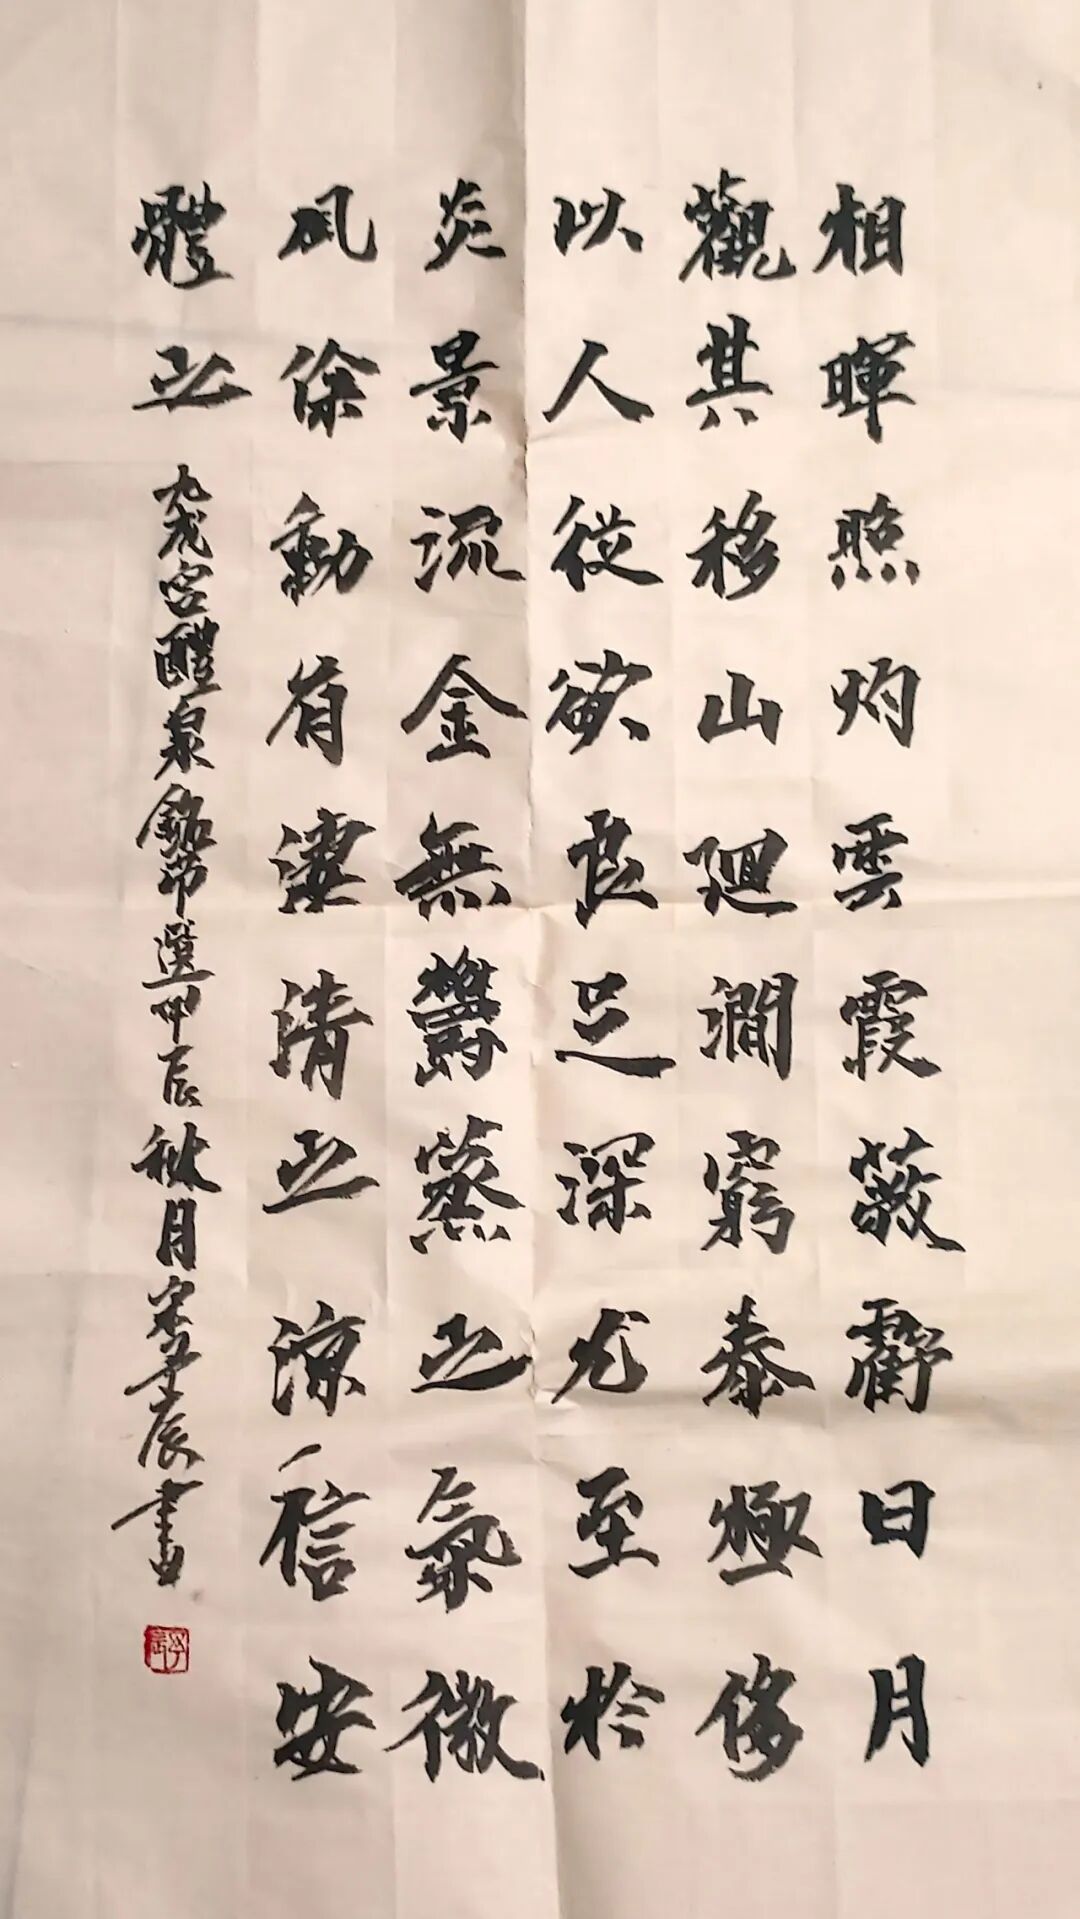 相暉照灼雲霞蔽虧日月
觀其移山廻澗窮泰極侈
以人從欲良足深尤至於
炎景流金無鬱蒸之氣微
風徐動有淒清之涼信安
體之
九成宮醴泉銘节選甲辰秋月宋辰書